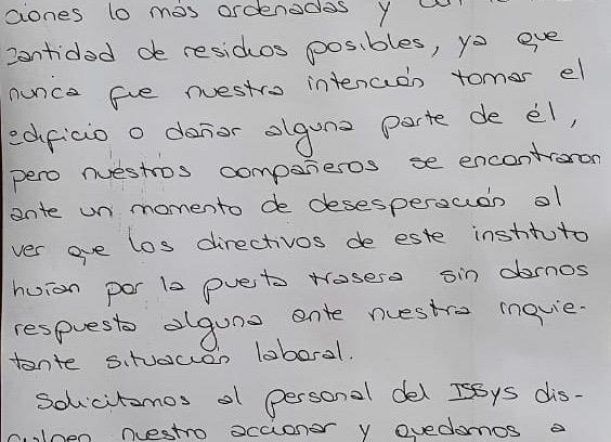 ciones lo más ordenadas y
cantidad de residuos posibles, ya que
nunca fue nuestra intención tomar el
edificio o dañar alguna parte de él,
pero nuestros compañeros se encontraron
ante un momento de desesperación al
ver que los directivos de este instituto
huían por la puerta trasera sin darnos
respuesta alguna ante nuestra inquie-
tante situación laboral.
Solicitamos al personal del ISSyS dis-
culpen nuestro accionar y quedamos a